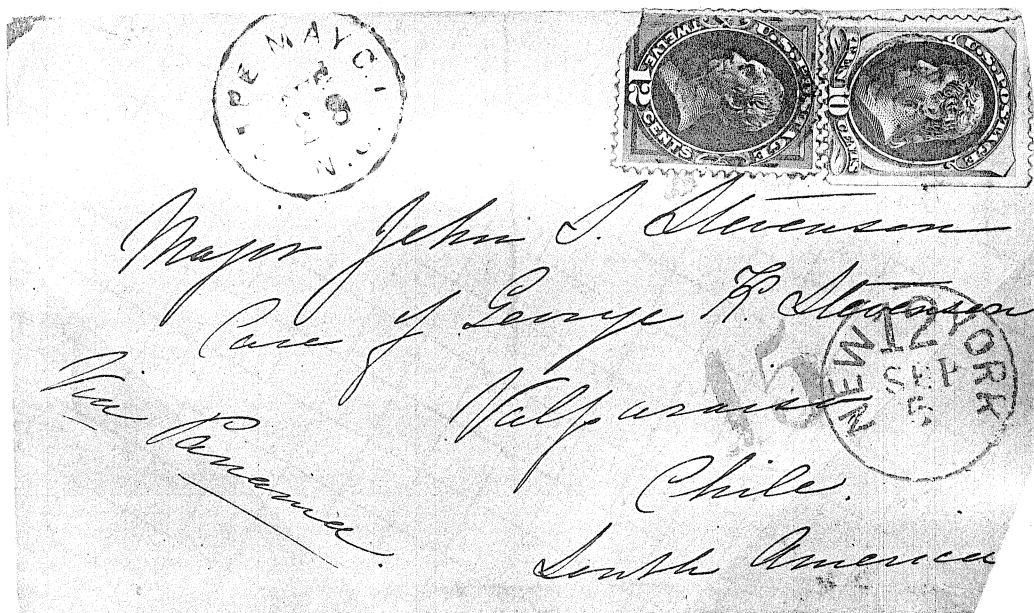 CAPE MAY C.H. N.J.
U.S. POSTAGE
12
TWELVE CENTS
U.S. POSTAGE
10
TEN CENTS
Major John S. Stevenson
Care of George K. Stevenson
Valparaiso
Chile.
South America
Via Panama
15
NEW YORK
12
SEP
5